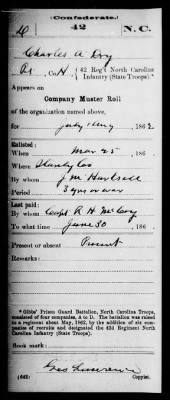 (Confederate.)
D 42 N.C.
Charles A Dry
Pt, Co. H, 42 Reg't North Carolina
Infantry (State Troops).*
Appears on
Company Muster Roll
of the organization named above,
for July & Aug, 1862
Enlisted:
When Mar 25, 186
Where Stanly Co
By whom J. M. Hartsell
Period 3 yrs or war
Last paid:
By whom Capt. R. H. McCoy
To what time June 30, 186
Present or absent Present
Remarks:
*Gibbs' Prison Guard Battalion, North Carolina Troops,
consisted of four companies, A to D. The battalion was raised
to a regiment about May, 1862, by the addition of six com-
panies of recruits and designated the 42d Regiment North
Carolina Infantry (State Troops).
Book mark:
(642) Copyist.